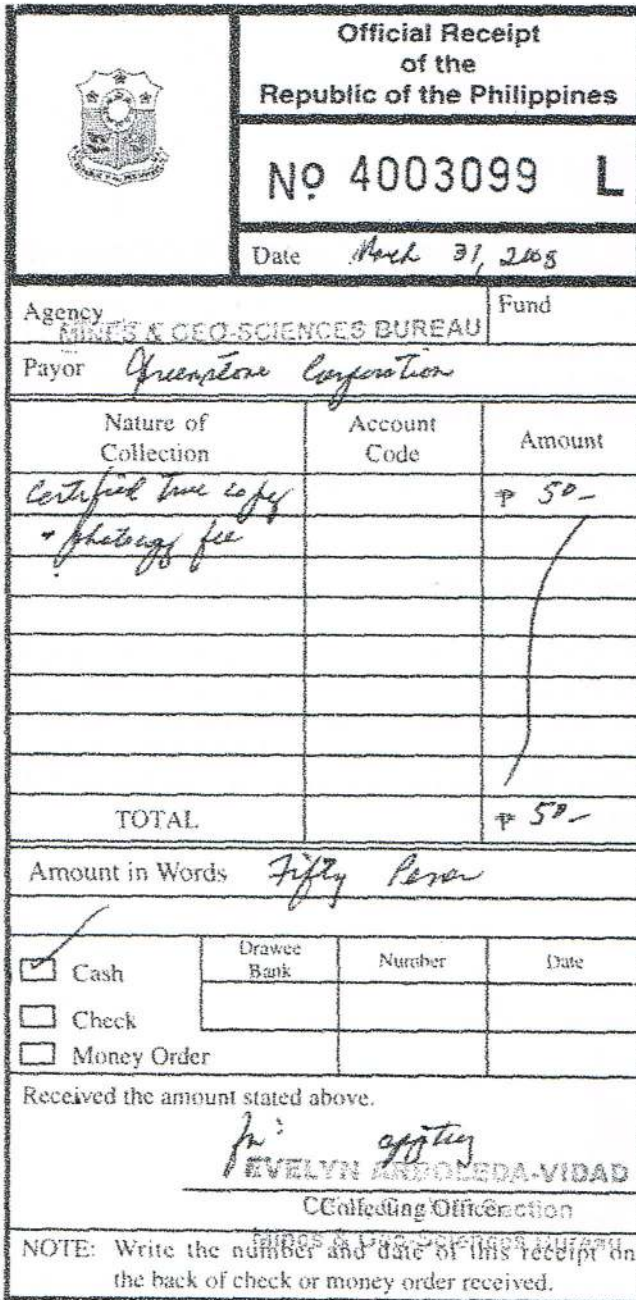 Official Receipt
of the
Republic of the Philippines
Nº 4003099 L
Date March 31, 2008
Agency Fund
MINES & GEO-SCIENCES BUREAU
Payor Greenstone Corporation
Nature of Collection Account Code Amount
Certified true copy ₱ 50-
+ photocopy fee
TOTAL ₱ 50-
Amount in Words Fifty Pesos
Drawee Bank Number Date
Cash
Check
Money Order
Received the amount stated above.
for:
EVELYN ARBOLEDA-VIDAD
Collecting Officer
Mines & Geo-Sciences Bureau
NOTE: Write the number and date of this receipt on
the back of check or money order received.